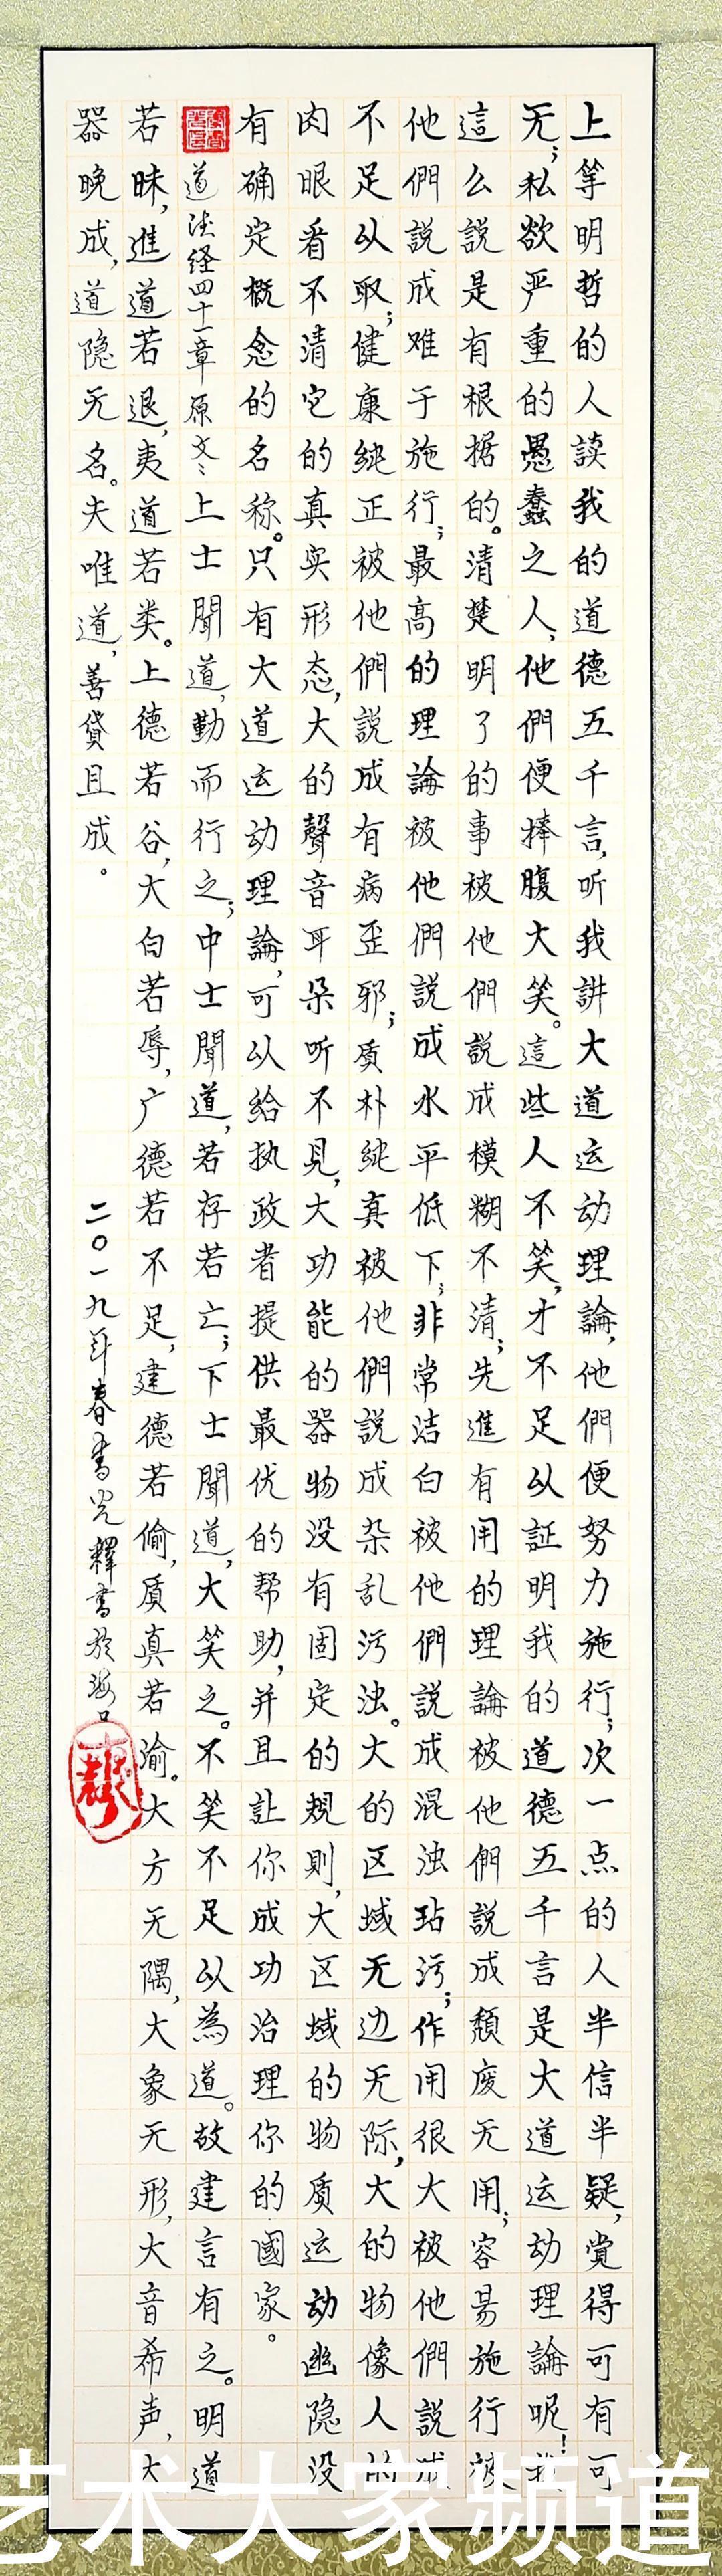 上等明哲的人读我的道德五千言，听我讲大道运动理論，他們便努力施行；次一点的人半信半疑，觉得可有可
无；私欲严重的愚蠢之人，他們便捧腹大笑。這些人不笑，才不足以証明我的道德五千言是大道运动理論呢！我
這么說是有根据的。清楚明了的事被他們說成模糊不清；先進有用的理論被他們說成颓废无用；容易施行被
他們說成难于施行；最高的理論被他們說成水平低下；非常洁白被他們說成混浊玷污；作用很大被他們說成
不足以取；健康純正被他們說成有病歪邪；质朴純真被他們說成杂乱污浊。大的区域无边无际，大的物像人的
肉眼看不清它的真实形态，大的聲音耳朵听不見，大功能的器物没有固定的規則，大区域的物质运动幽隐没
有确定概念的名称。只有大道运动理論，可以給执政者提供最优的帮助，并且让你成功治理你的國家。
道德经四十一章原文：上士聞道，勤而行之；中士聞道，若存若亡；下士聞道，大笑之。不笑不足以為道。故建言有之。明道
若昧，進道若退，夷道若类。上德若谷，大白若辱，广德若不足，建德若偷，质真若渝。大方无隅，大象无形，大音希声，大
器晚成，道隐无名。夫唯道，善贷且成。
二〇一九年春書
釋書於海口
艺术大家频道